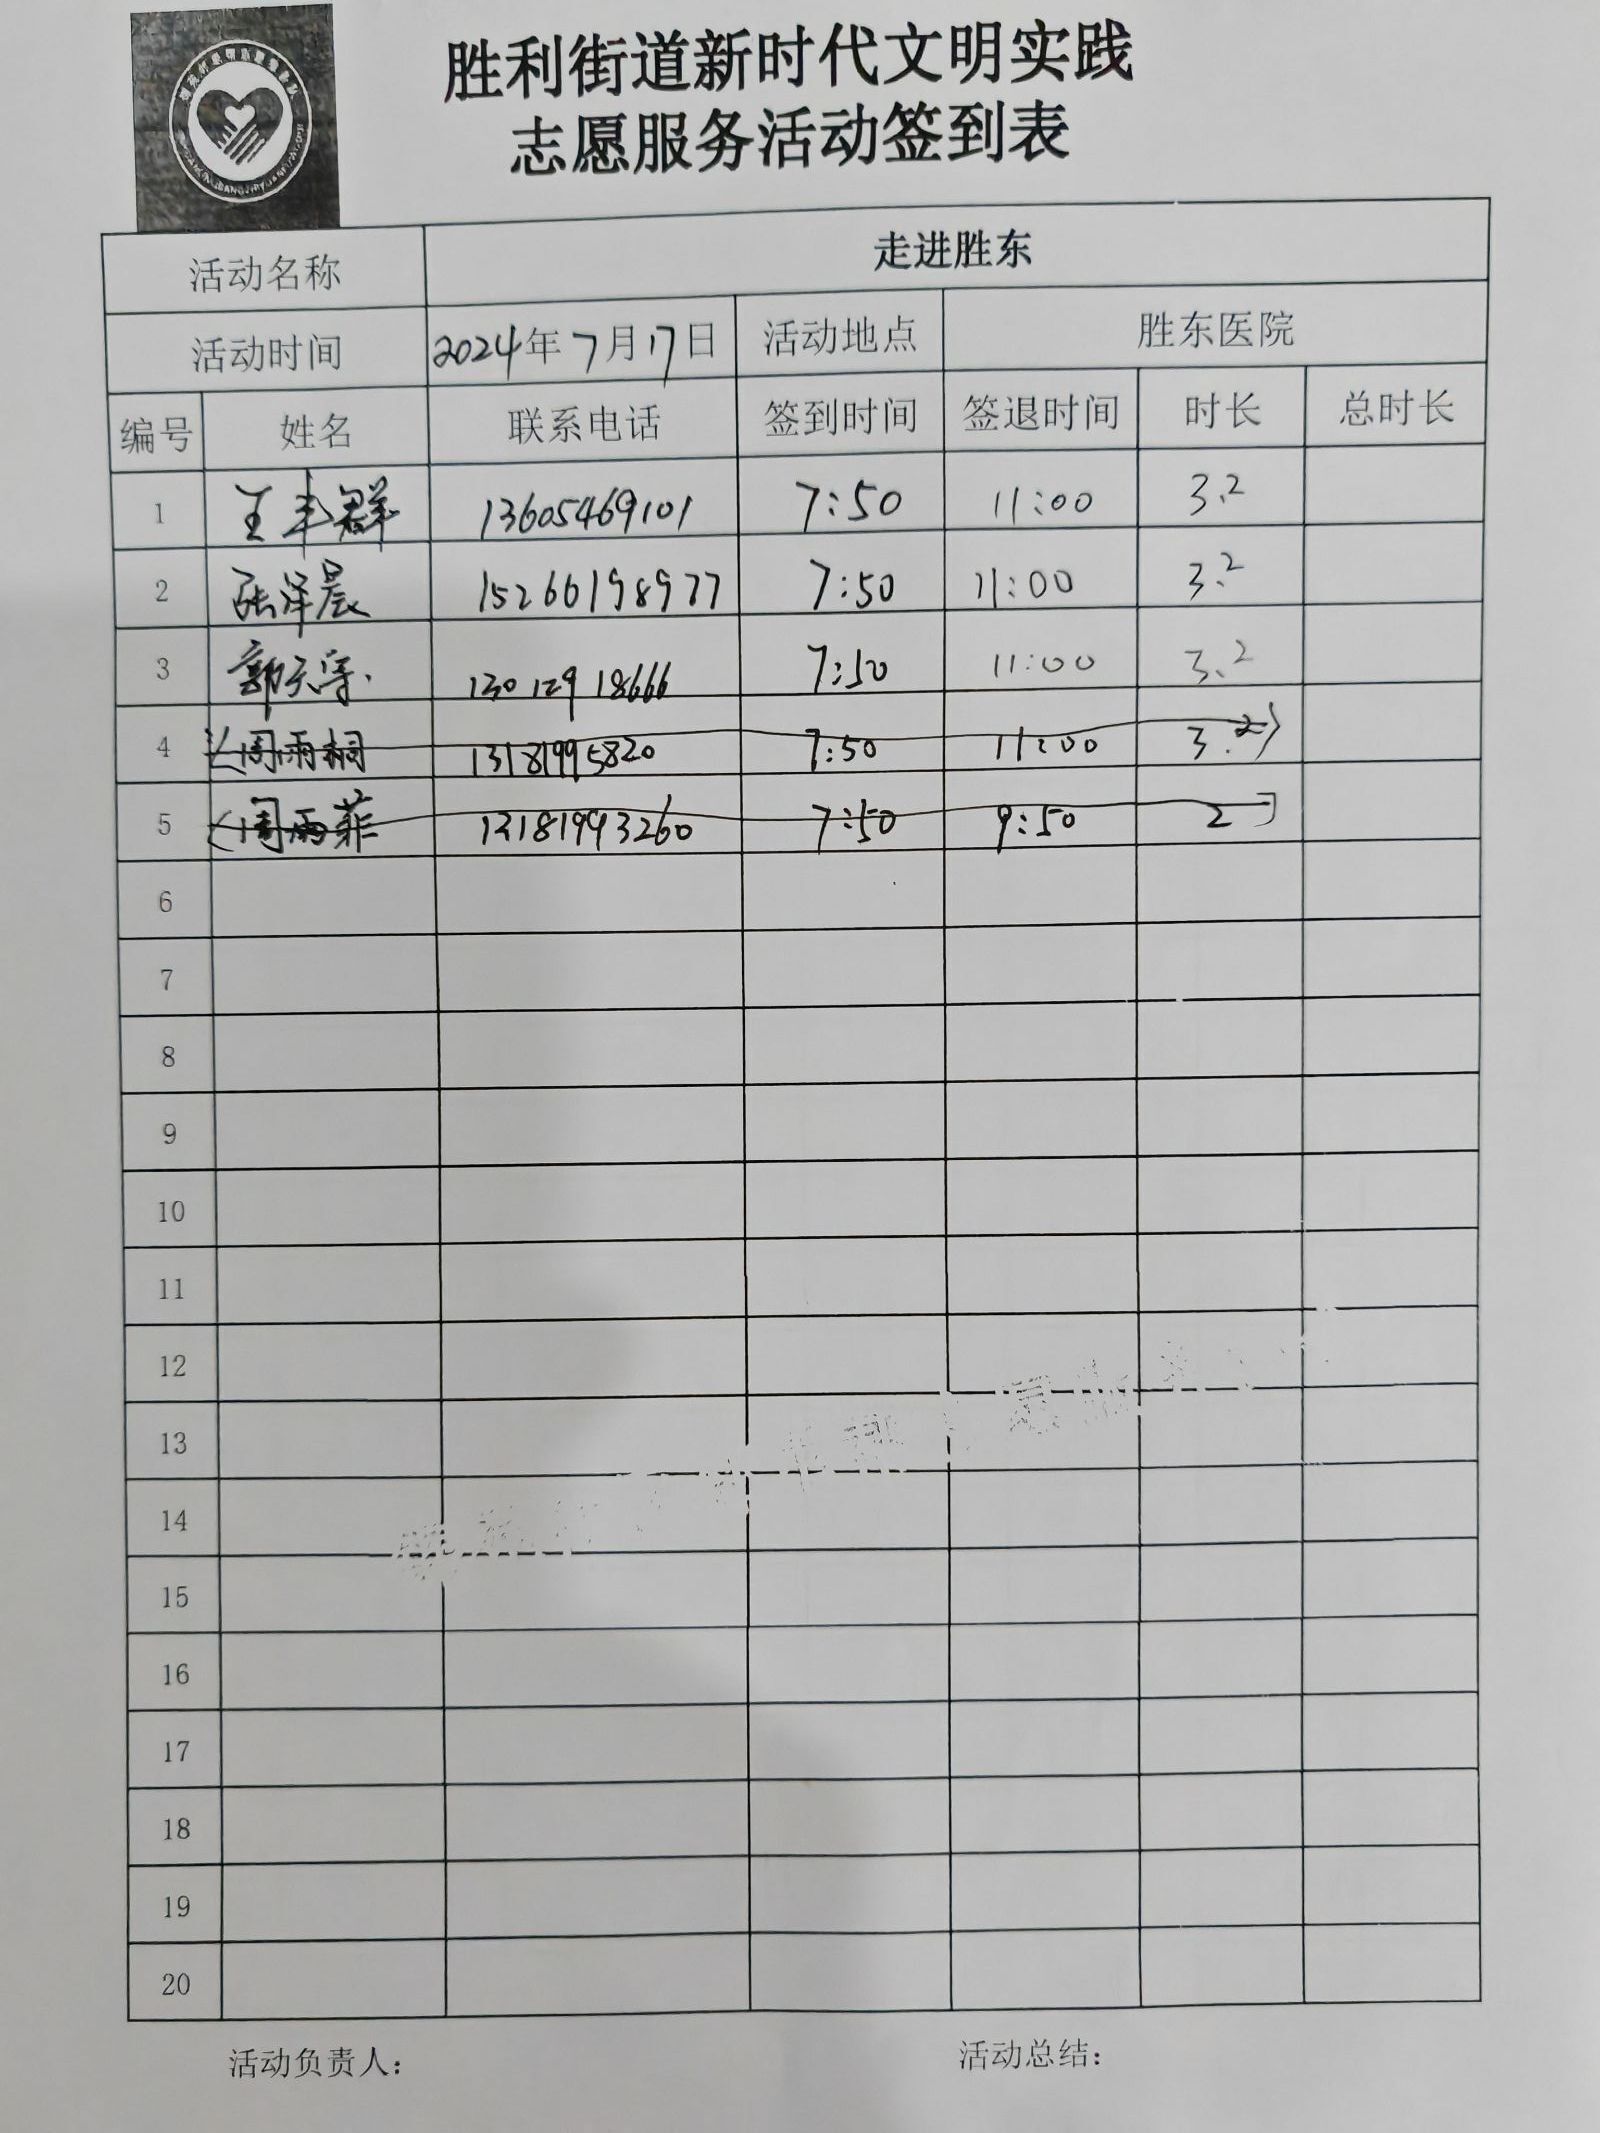 胜利街道新时代文明实践
志愿服务活动签到表
活动名称 走进胜东
活动时间 2024年7月17日 活动地点 胜东医院
编号 姓名 联系电话 签到时间 签退时间 时长 总时长
1 王丰群 13605469101 7:50 11:00 3.2
2 张泽晨 15266198977 7:50 11:00 3.2
3 郭天 13012918666 7:50 11:00 3.2
4 周雨桐 13181995820 7:50 11:00 3.2
5 周雨菲 13181993260 7:50 9:50 2
6
7
8
9
10
11
12
13
14
15
16
17
18
19
20
活动负责人: 活动总结: